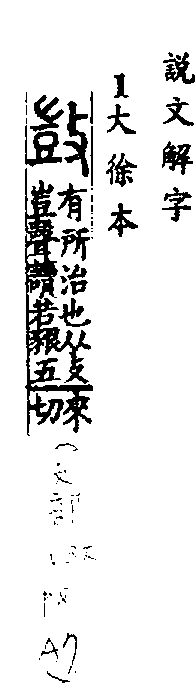 説文解字
1大徐本
敳
有所治也从攴
豈聲讀若豤五
來
切
(攴部